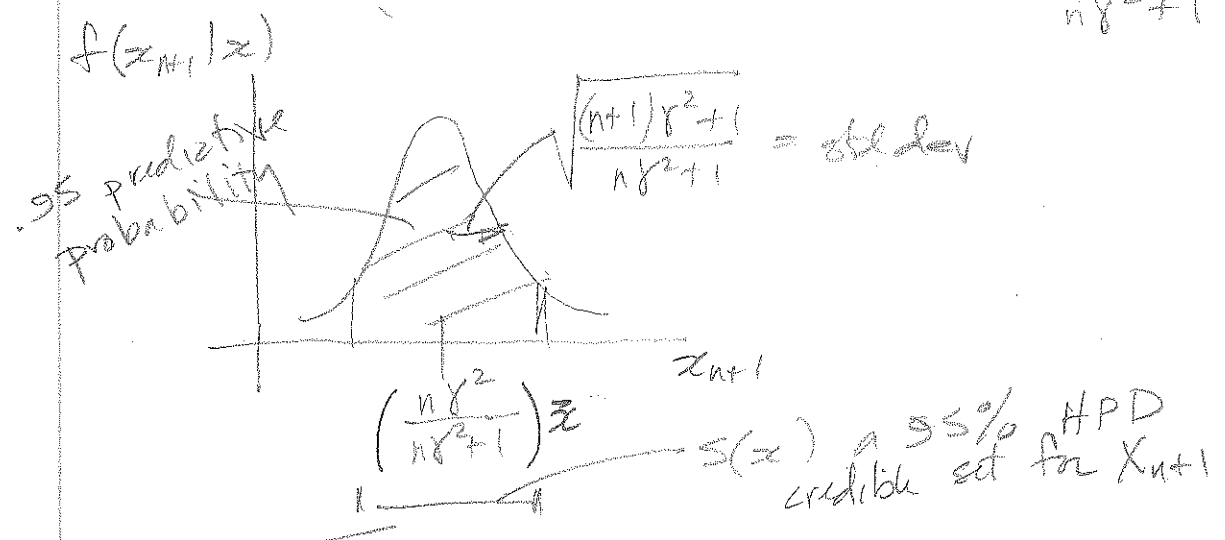 nγ²+1
f(x_{n+1}|x)
.95 predictive
probability
√(((n+1)γ²+1)/(nγ²+1)) = std dev
x_{n+1}
(nγ²/(nγ²+1)) x̄
S(x) a 95% HPD
credible set for X_{n+1}